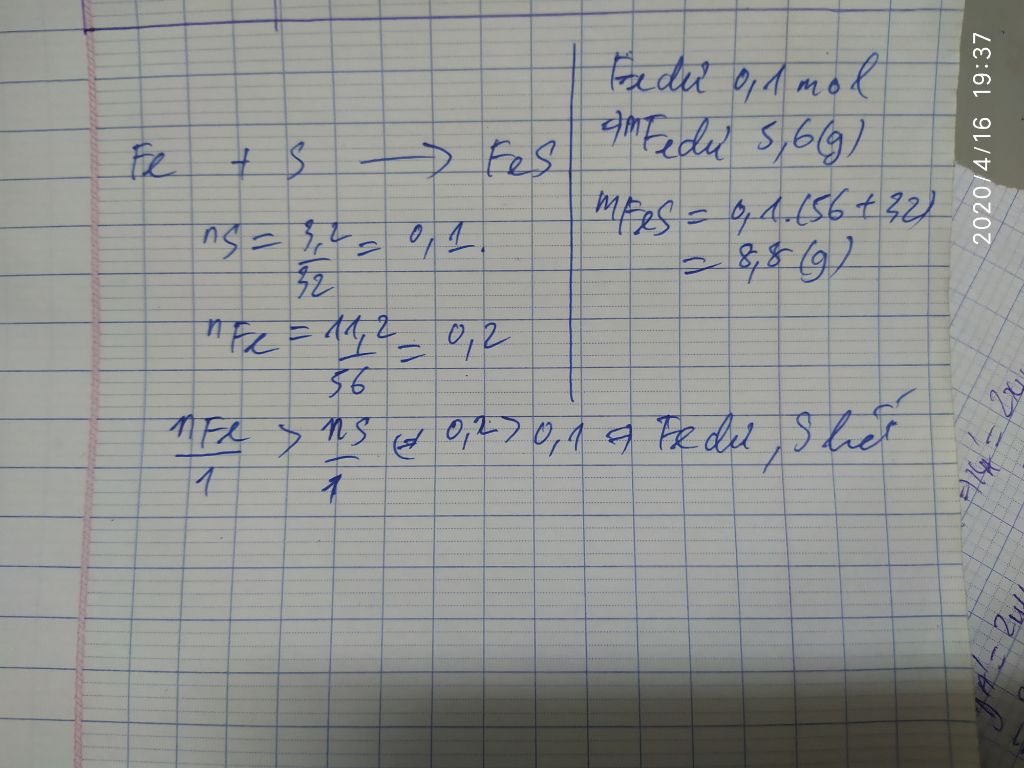 Fe + S → FeS
nS = 3,2/32 = 0,1.
nFe = 11,2/56 = 0,2
nFe/1 > nS/1 ⇔ 0,2 > 0,1 ⇒ Fe dư, S hết
Fe dư 0,1 mol
⇒ mFe dư 5,6 (g)
mFeS = 0,1.(56 + 32)
= 8,8 (g)
2020/4/16 19:37